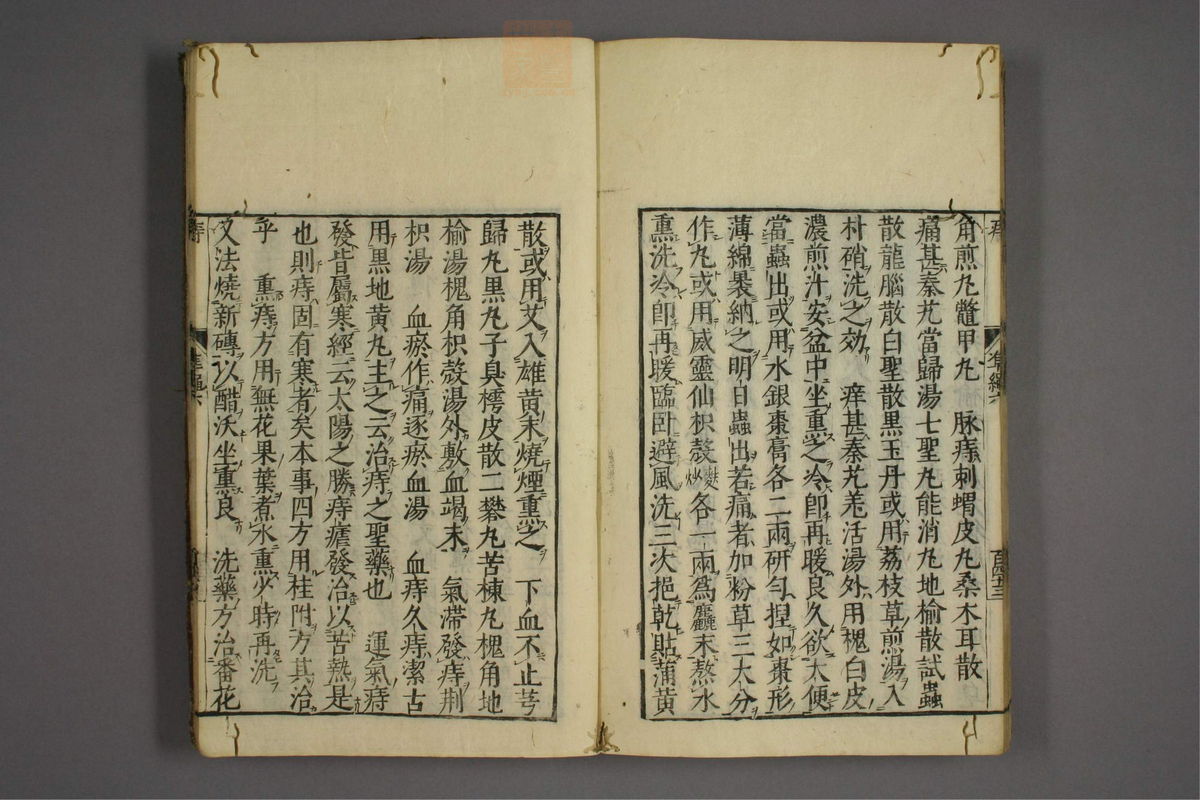 角煎丸鼈甲丸　脉痔刺蝟皮丸桑木耳散
痛甚秦艽當歸湯七聖丸能消丸地榆散試蟲
散龍腦散白聖散黑玉丹或用荔枝草煎湯入
朴硝洗之效　痒甚秦艽羌活湯外用槐白皮
濃煎汁安盆中坐熏之冷即再暖良久欲大便
當蟲出或用水銀棗膏各二兩研勻捏如棗形
薄綿裹納之明日蟲出若痛者加粉草三大分
作丸或用威靈仙枳殼麩炒各一兩爲麤末熬水
熏洗冷即再暖臨卧避風洗三次挹乾貼蒲黃
散或用艾入雄黃末燒煙熏之　下血不止芎
歸丸黑丸子臭樗皮散二礬丸苦楝丸槐角地
榆湯槐角枳殼湯外敷血竭末　氣滯發痔荆
枳湯　血瘀作痛逐瘀血湯　血痔久痔潔古
用黑地黃丸主之云治痔之聖藥也　運氣痔
發皆屬寒經云太陽之勝痔瘧發治以苦熱是
也則痔固有寒者矣本事四方用桂附方其治
乎　熏痔方用無花果葉煮水熏少時再洗
又法燒新磚以醋沃坐熏良　洗藥方治番花